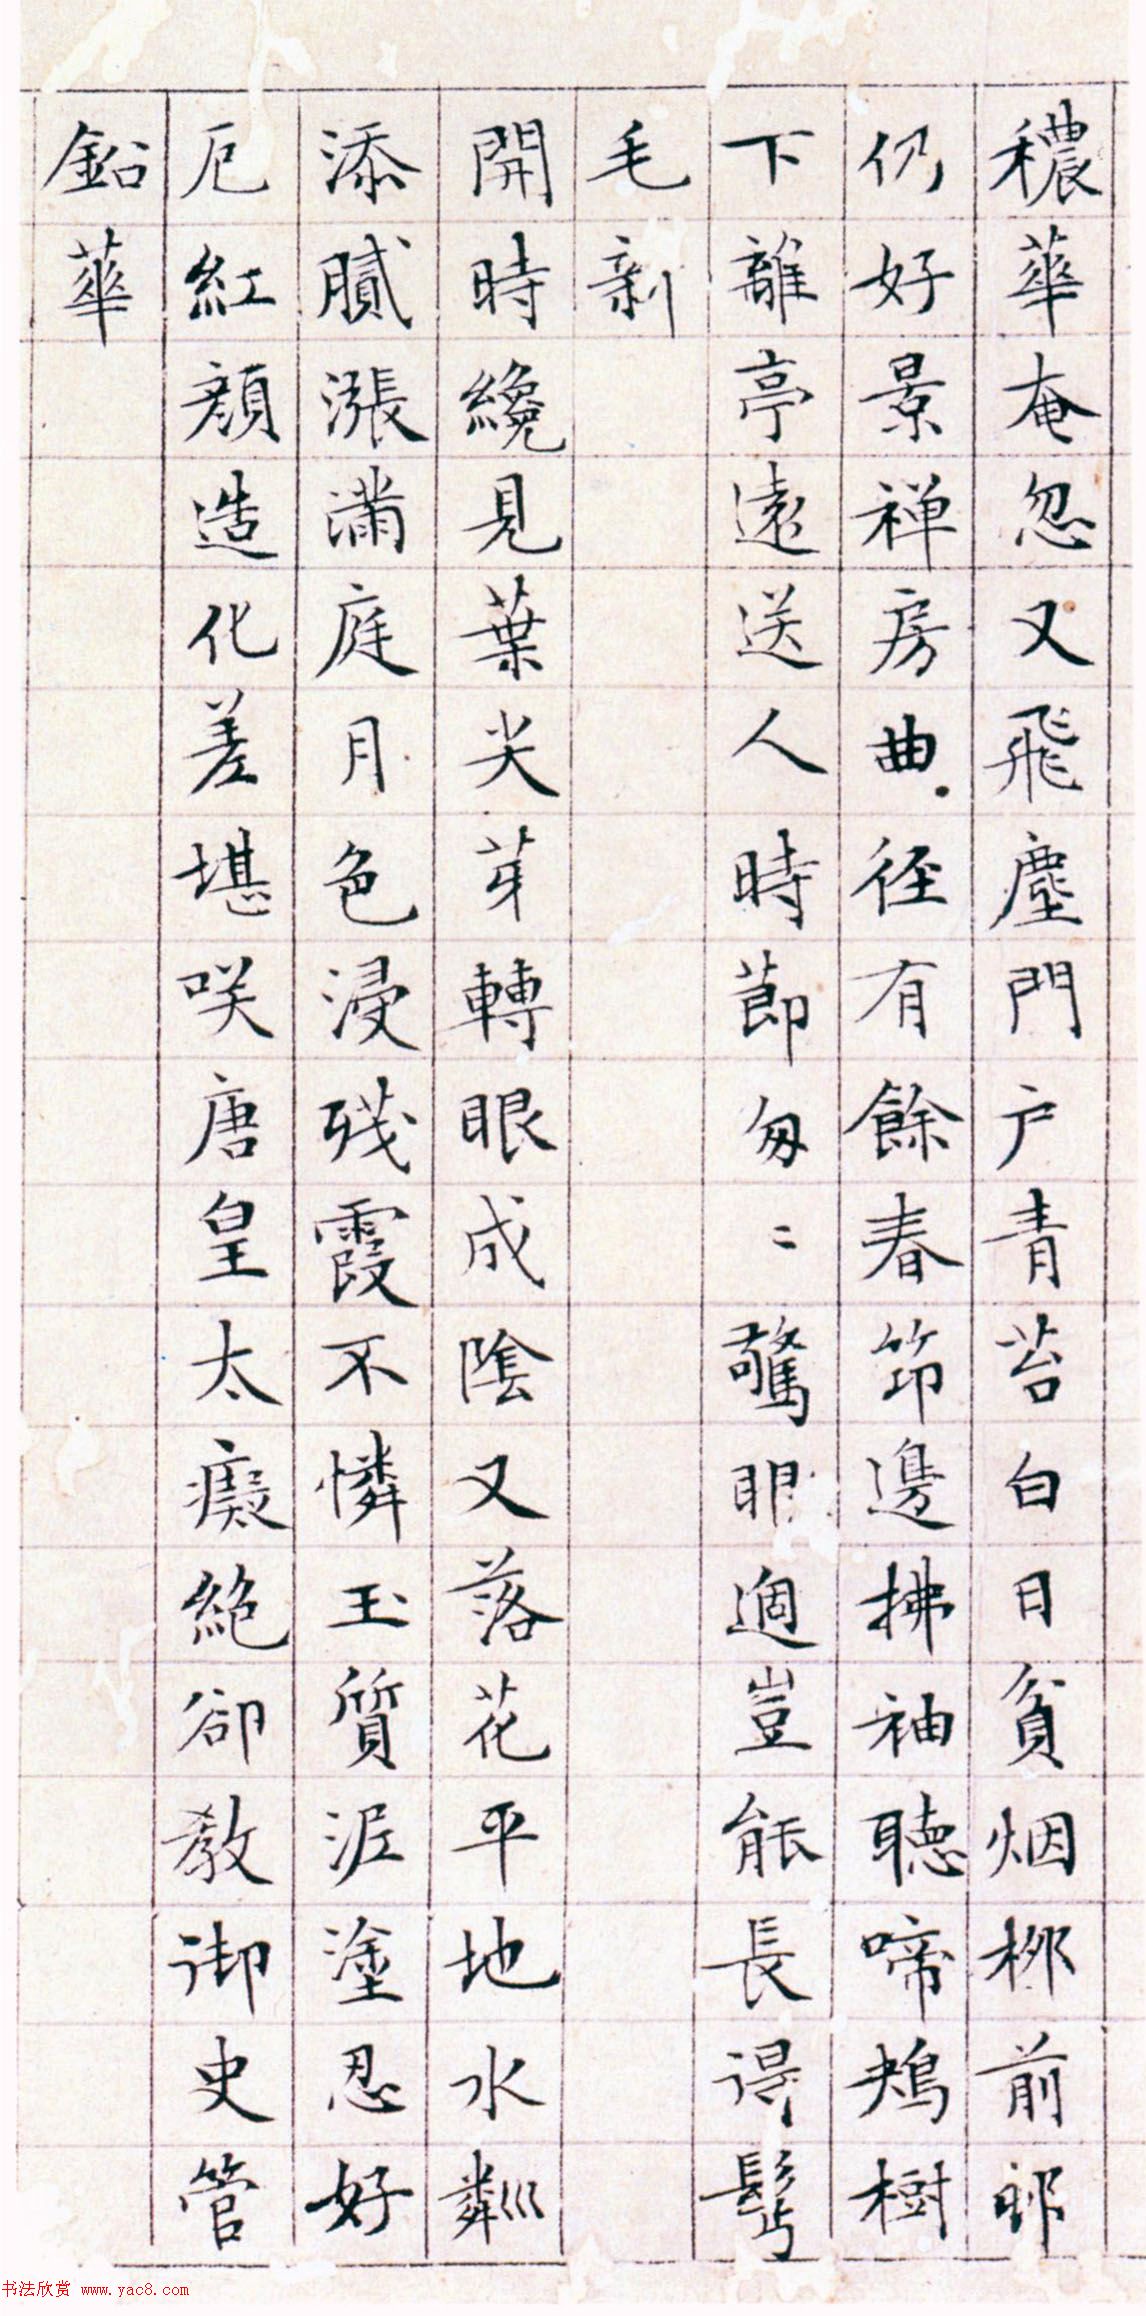 穠華奄忽又飛塵門户青苔白日貧烟柳前
仍好景禅房曲徑有餘春筇邊拂袖聽啼鴂樹
下離亭遠送人時節匆〻驚眼過豈能長得鬢
毛新
開時纔見葉尖芽轉眼成陰又落花平地水粼
添膩漲滿庭月色浸殘霞不憐玉質泥塗忍好
厄紅顔造化差堪咲唐皇太癡絶卻教御史管
鉛華
书法欣赏 www.yac8.com